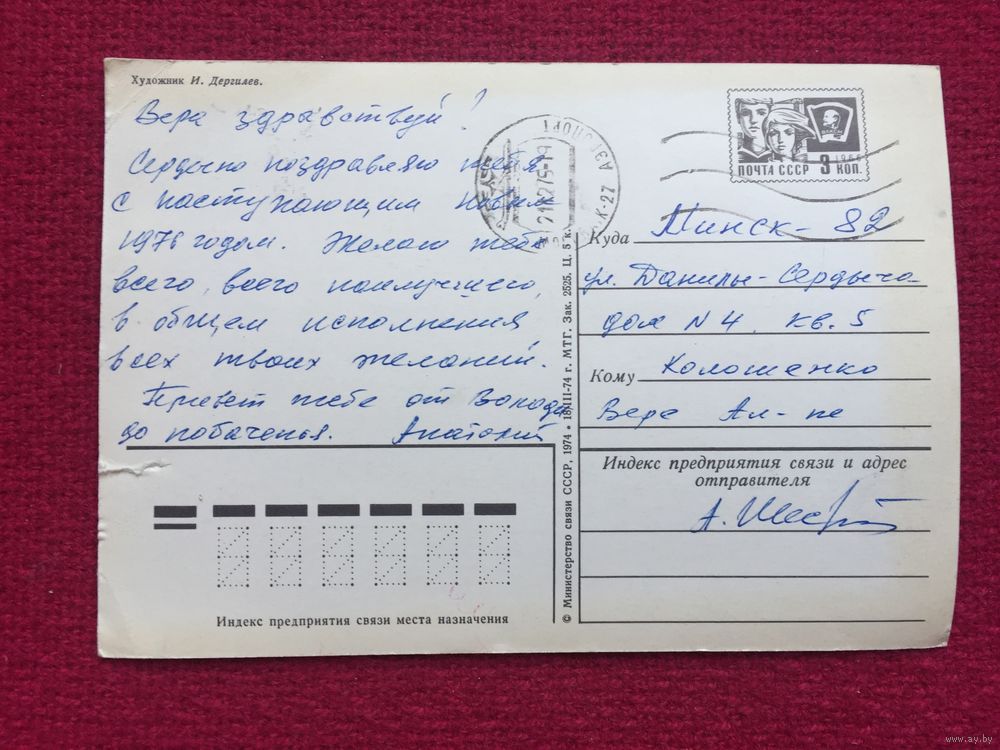 Художник И. Дергилев.
Вера здравствуй!
Сердечно поздравляю тебя
с наступающим новым
1976 годом. Желаю тебе
всего, всего наилучшего,
в общем исполнения
всех твоих желаний.
Привет тебе от Володи
до побаченья. Анатолий
Индекс предприятия связи места назначения
© Министерство связи СССР, 1974 • 18/III-74 г. МТГ. Зак. 2525. Ц. 5 к.
АЭРОПОРТ
ПОЧТА СССР 3 КОП.
1966
Куда Минск - 82
ул. Данилы-Сердыча-
дом N 4, кв. 5
Кому Колошенко
Вере Ал-не
Индекс предприятия связи и адрес
отправителя
www.ay.by